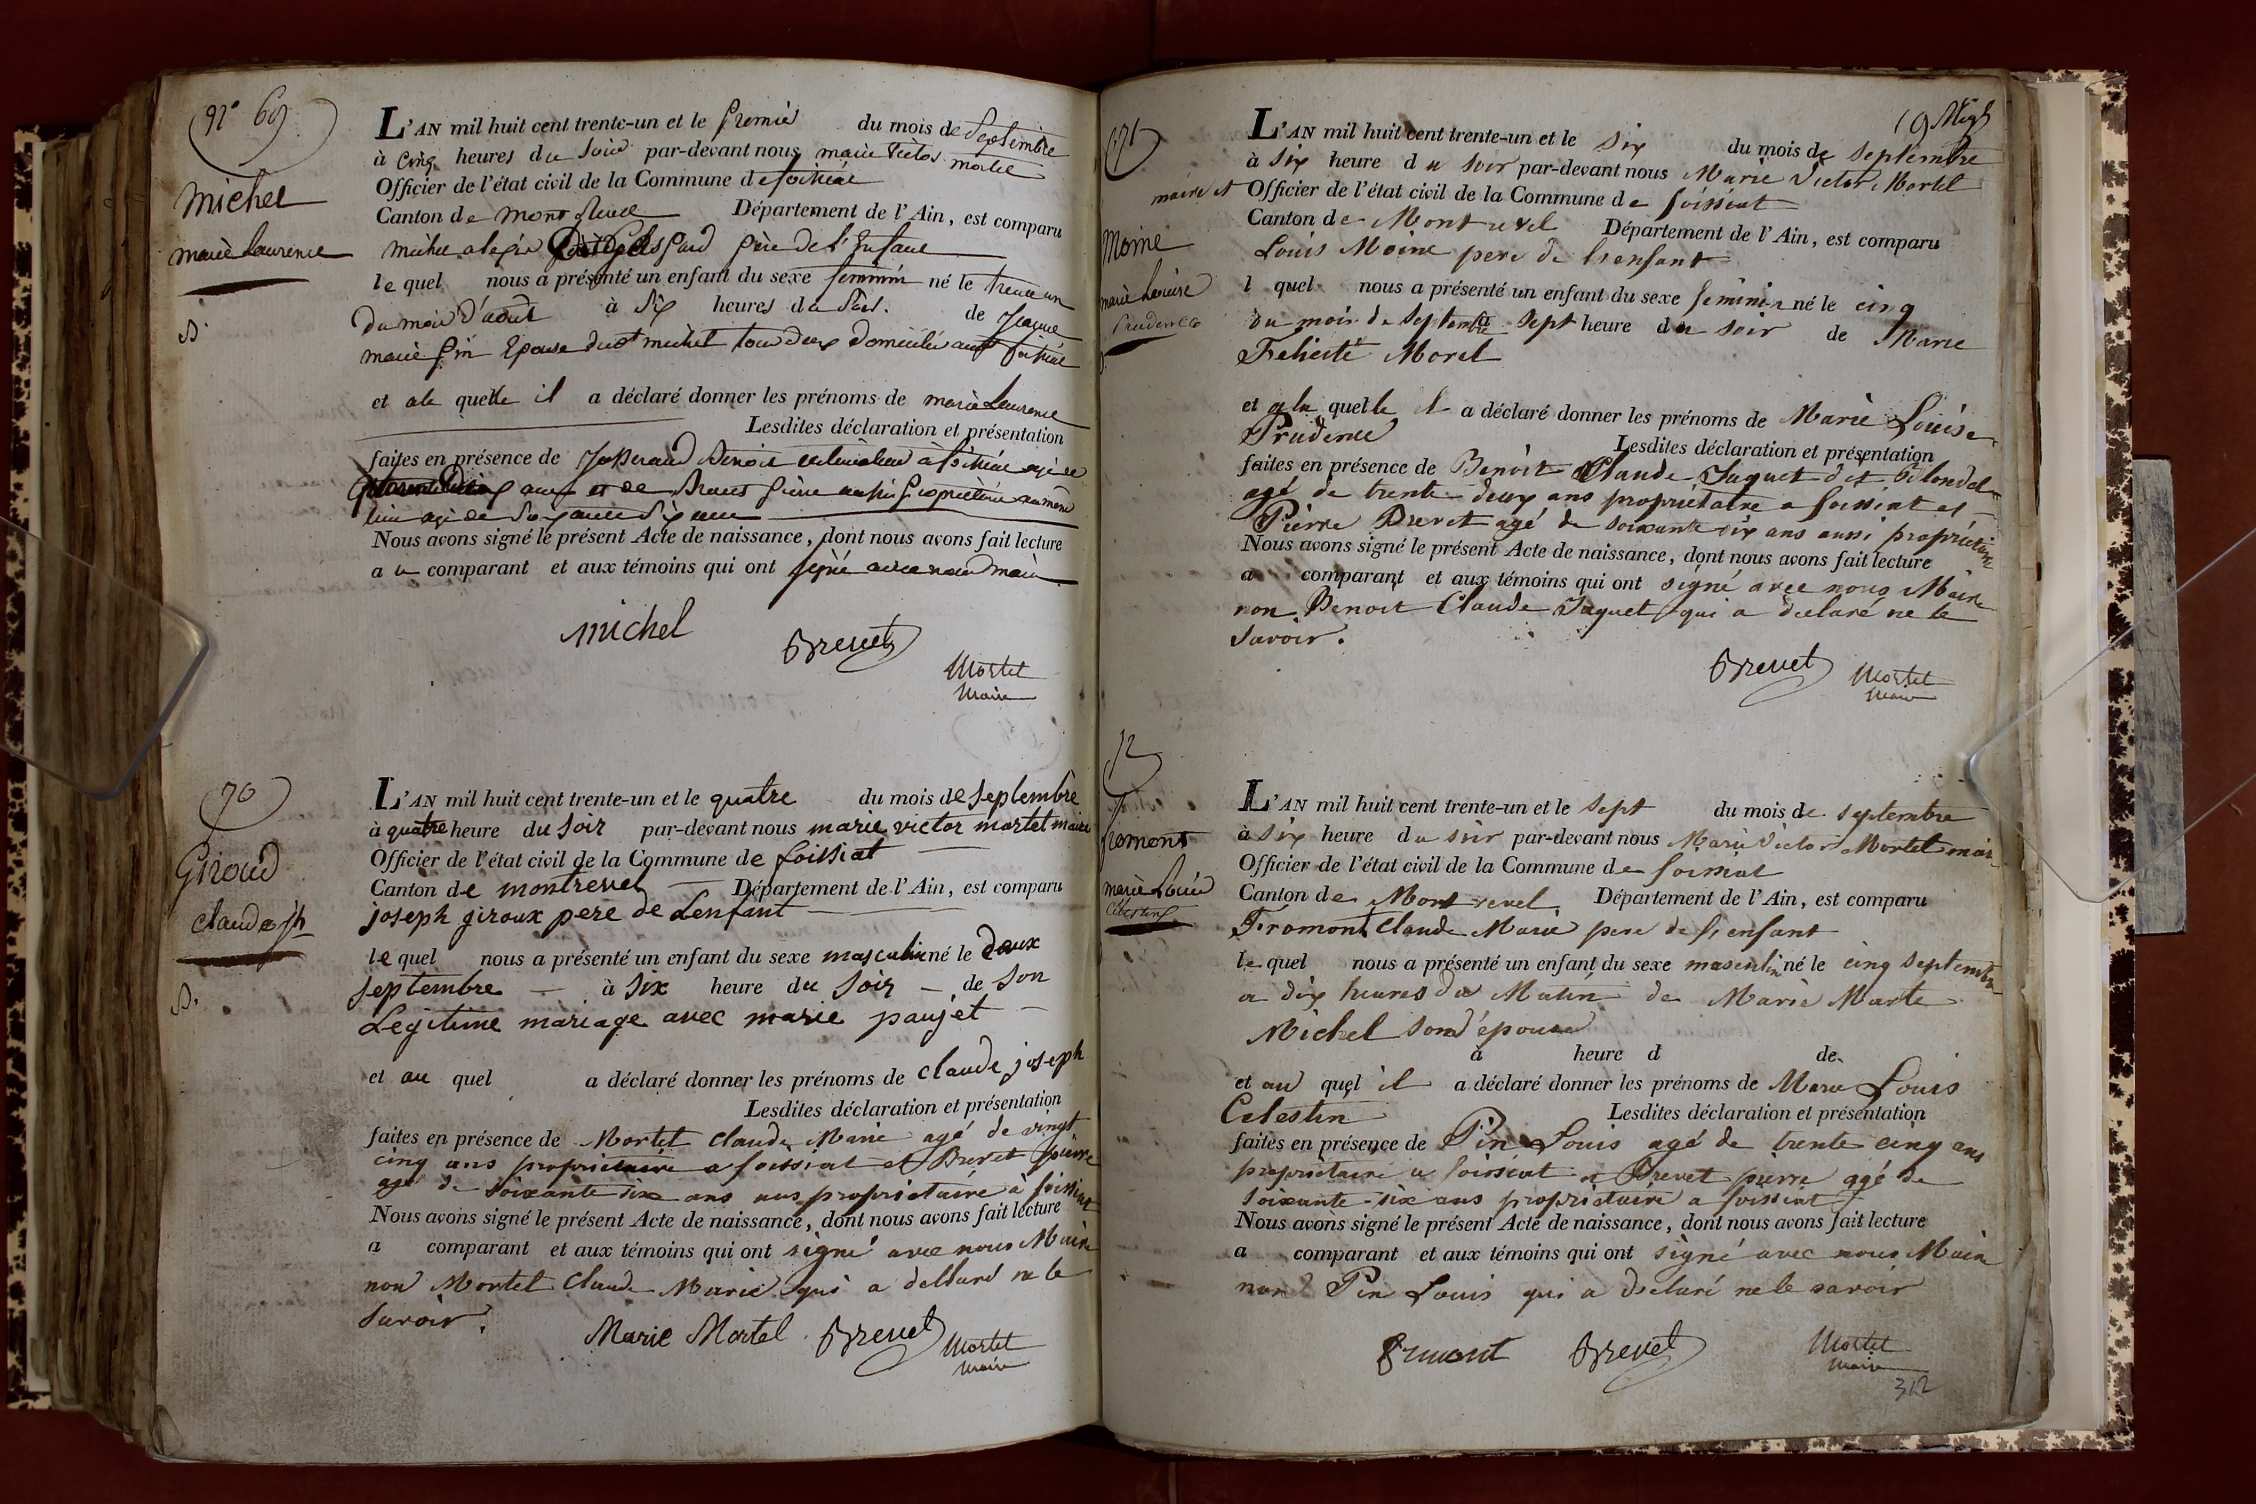 N° 69
Michel
marie Laurence
L'AN mil huit cent trente-un et le premier du mois de septembre
à cinq heures du soir par-devant nous marie victor mortel
Officier de l'état civil de la Commune de foissiat
Canton de montrevel Département de l'Ain, est comparu
michel père de l'enfant
le quel nous a présenté un enfant du sexe feminin né le trente un
du mois d'août à six heures du soir. de
marie pin Epouse dudt michel tous deux domiciliés audt foissiat
et a la quelle il a déclaré donner les prénoms de marie Laurence
Lesdites déclaration et présentation
faites en présence de Josserand Benoit cultivateur à foissiat agé de
ans et de Brevet pierre aussi propriétaire au même
lieu agé de soixante six ans
Nous avons signé le présent Acte de naissance, dont nous avons fait lecture
au comparant et aux témoins qui ont signé avec nous maire
michel Brevet Mortel
Maire
70
Giroud
claude jh
L'AN mil huit cent trente-un et le quatre du mois de septembre
à quatre heure du soir par-devant nous marie victor mortel maire
Officier de l'état civil de la Commune de foissiat
Canton de montrevel Département de l'Ain, est comparu
joseph giroux pere de Lenfant
le quel nous a présenté un enfant du sexe masculin né le deux
septembre à six heure du soir de son
Legitime mariage avec marie paujet
et au quel a déclaré donner les prénoms de claude joseph
Lesdites déclaration et présentation
faites en présence de Mortel Claude Marie agé de vingt
cinq ans propriétaire a foissiat et Brevet pierre
agé de soixante six ans aus propriétaire à foissiat
Nous avons signé le présent Acte de naissance, dont nous avons fait lecture
a comparant et aux témoins qui ont signé avec nous Maire
non Mortel Claude Marie qui a déclaré ne le
savoir.
Marie Mortel Brevet Mortel
Maire
71
Moine
marie Louise
Prudence
L'AN mil huit cent trente-un et le six du mois de septembre
à six heure du soir par-devant nous Marie Victor Mortel
maire et Officier de l'état civil de la Commune de foissiat
Canton de Montrevel Département de l'Ain, est comparu
Louis Moine pere de l'enfant
l quel nous a présenté un enfant du sexe feminin né le cinq
du mois de septembre à sept heure du soir de Marie
Felicité Morel
et a la quelle il a déclaré donner les prénoms de Marie Louise
Prudence
Lesdites déclaration et présentation
faites en présence de Benoit Claude Juquet dit Blondel
agé de trente deux ans propriétaire a foissiat et
Pierre Brevet agé de soixante six ans aussi propriétaire
Nous avons signé le présent Acte de naissance, dont nous avons fait lecture
a comparant et aux témoins qui ont signé avec nous Maire
non Benoit Claude Juquet qui a declaré ne le
savoir.
Brevet Mortel
Maire
72
fromont
marie Louis
Célestin
L'AN mil huit cent trente-un et le sept du mois de septembre
à six heure du soir par-devant nous Marie Victor Mortel maire
Officier de l'état civil de la Commune de foissiat
Canton de Montrevel Département de l'Ain, est comparu
Fromont Claude Marie pere de l'enfant
le quel nous a présenté un enfant du sexe masculin né le cinq septembre
a dix heures du Matin de Marie Marte
Michel son épouse
à heure d de
et au quel il a déclaré donner les prénoms de Marie Louis
Celestin
Lesdites déclaration et présentation
faites en présence de Pin Louis agé de trente cinq ans
propriétaire a foissiat et Brevet pierre agé de
soixante-six ans propriétaire a foissiat
Nous avons signé le présent Acte de naissance, dont nous avons fait lecture
a comparant et aux témoins qui ont signé avec nous Maire
non Pin Louis qui a declaré ne le savoir
Brevet Mortel
Maire
312